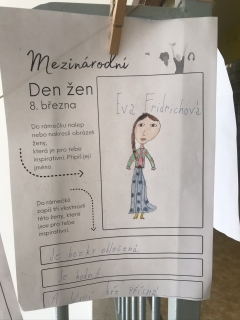 Mezinárodní
Den žen
8. března
Do rámečku nalep
nebo nakresli obrázek
ženy,
která je pro tebe
inspirativní. Připiš její
jméno.
Eva Fridrichová
Do rámečku
zapiš tři vlastnosti
této ženy, které
jsou pro tebe
inspirativní.
Je hezky oblečená
Je hodná